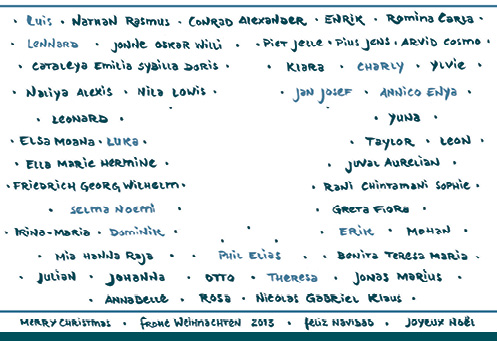 · Luis · Nathan Rasmus · Conrad Alexander · Enrik · Romina Carla ·
· Lennard · Jonne Oskar Willi · · Piet Jelle · Pius Jens · Arvid Cosmo ·
· Cataleya Emilia Sybilla Doris · · Klara · Charly · Ylvie ·
· Naliya Alexis · Nila Lowis · · Jan Josef · Annico Enya ·
· Leonard · · Yuna ·
· Elsa Moana · Luka · · Taylor · Leon ·
· Ella Marie Hermine · · Juval Aurelian ·
· Friedrich Georg Wilhelm · · Rani Chintamani Sophie ·
· Selma Noemi · · Greta Fiora ·
· Irina-Maria · Dominik · · Erik · Mohan ·
· Mia Hanna Raja · · Phil Elias · · Bonita Teresa Maria ·
· Julian · Johanna · Otto · Theresa · Jonas Marius ·
· Annabelle · Rosa · Nicolas Gabriel Klaus ·
Merry Christmas · Frohe Weihnachten 2013 · Feliz Navidad · Joyeux Noël